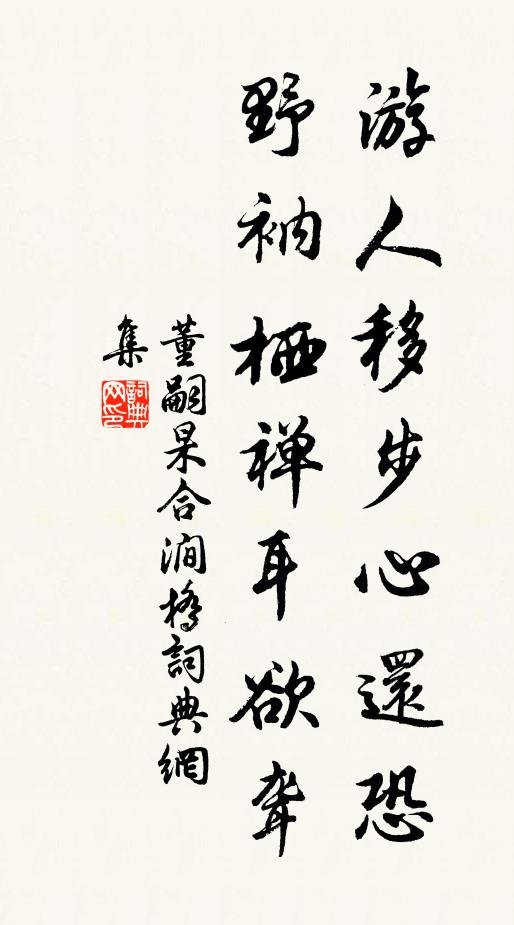 游人移步心還恐
野衲栖禅耳欲聾
董嗣杲合澗橋詞典網
集
詞典
网印